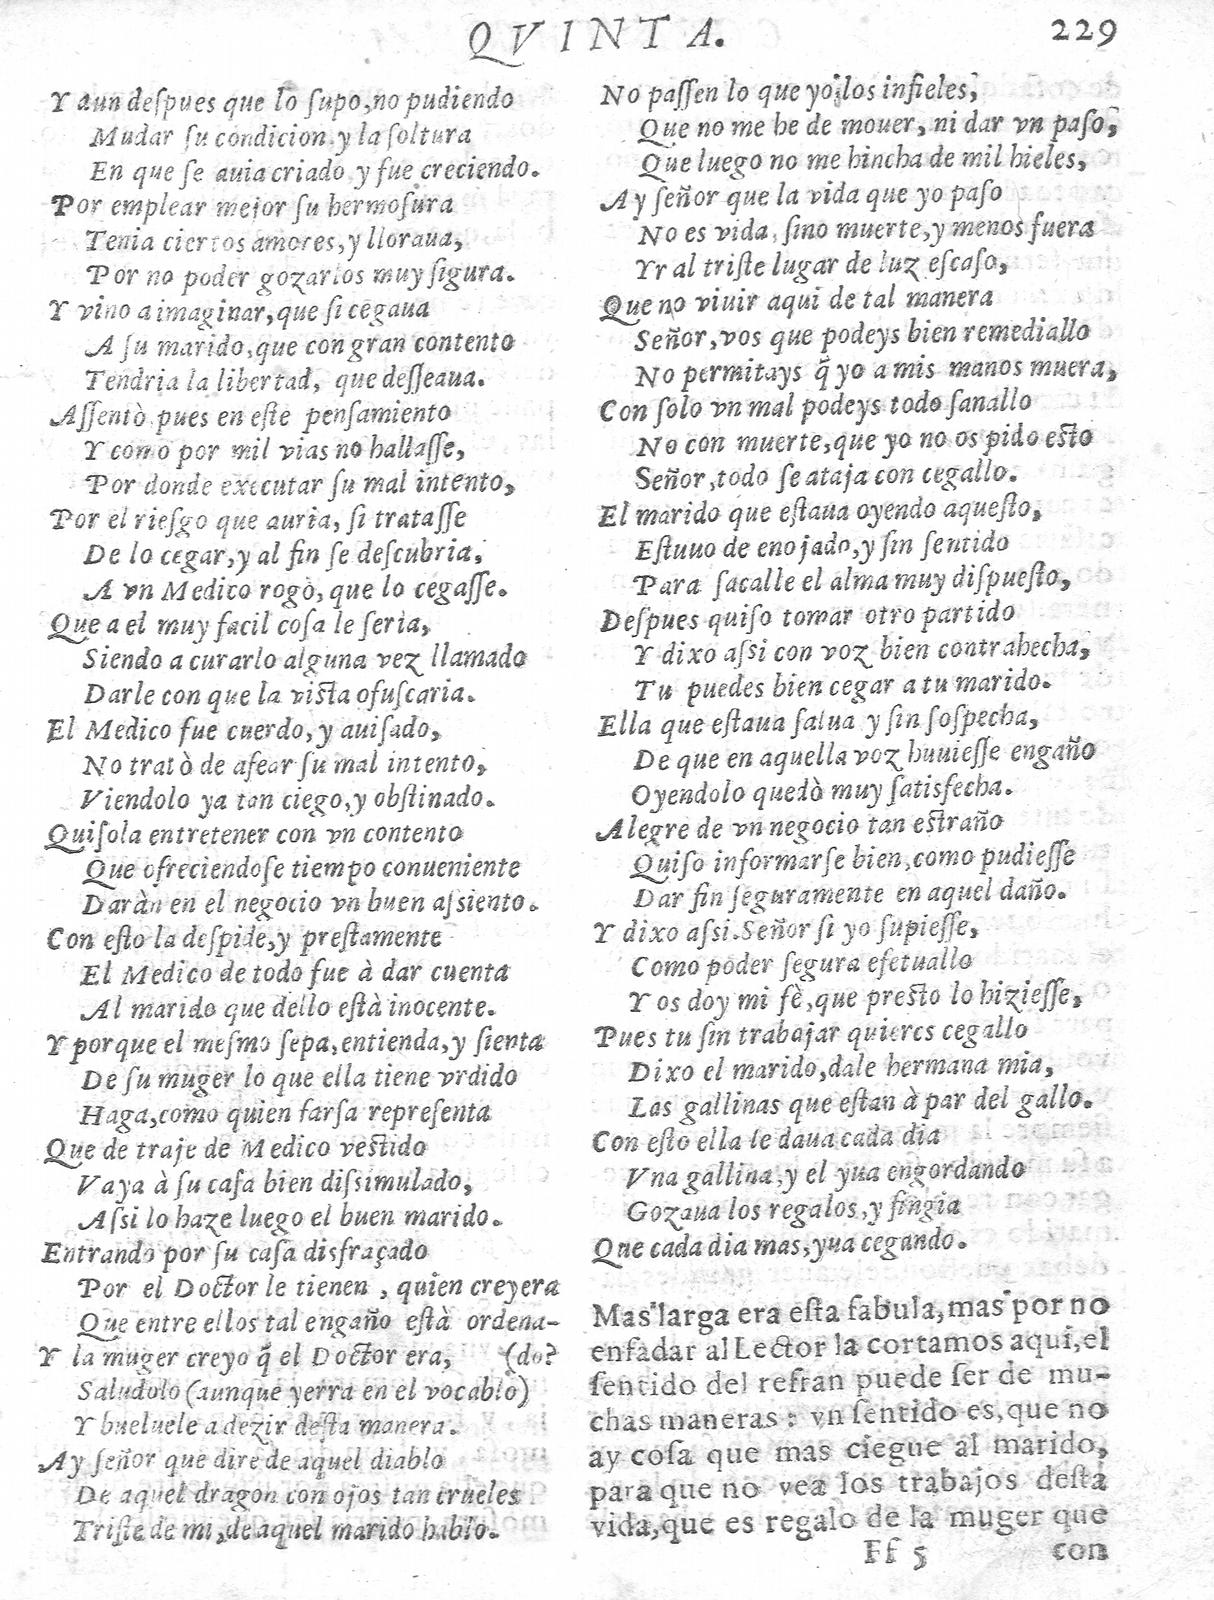 QVINTA.
229
Y aun despues que lo supo, no pudiendo
Mudar su condicion, y la soltura
En que se auia criado, y fue creciendo.
Por emplear mejor su hermosura
Tenia ciertos amores, y lloraua,
Por no poder gozarlos muy sigura.
Y vino a imaginar, que si cegaua
A su marido, que con gran contento
Tendria la libertad, que desseaua.
Assentò pues en este pensamiento
Y como por mil vias no hallasse,
Por donde executar su mal intento,
Por el riesgo que auria, si tratasse
De lo cegar, y al fin se descubria,
A vn Medico rogò, que lo cegasse.
Que a el muy facil cosa le seria,
Siendo a curarlo alguna vez llamado
Darle con que la vista ofuscaria.
El Medico fue cuerdo, y auisado,
No tratò de afear su mal intento,
Viendolo ya tan ciego, y obstinado.
Quisola entretener con vn contento
Que ofreciendose tiempo conueniente
Daràn en el negocio vn buen assiento.
Con esto la despide, y prestamente
El Medico de todo fue à dar cuenta
Al marido que dello està inocente.
Y porque el mesmo sepa, entienda, y sienta
De su muger lo que ella tiene vrdido
Haga, como quien farsa representa
Que de traje de Medico vestido
Vaya à su casa bien dissimulado,
Assi lo haze luego el buen marido.
Entrando por su casa disfraçado
Por el Doctor le tienen, quien creyera
Que entre ellos tal engaño està ordena-
Y la muger creyo q̃ el Doctor era, (do?
Saludolo (aunque yerra en el vocablo)
Y bueluele a dezir desta manera.
Ay señor que dire de aquel diablo
De aquel dragon con ojos tan crueles
Triste de mi, de aquel marido hablo.
No passen lo que yo, los infieles,
Que no me he de mouer, ni dar vn paso,
Que luego no me hincha de mil hieles,
Ay señor que la vida que yo paso
No es vida, sino muerte, y menos fuera
Yr al triste lugar de luz escaso,
Que no viuir aqui de tal manera
Señor, vos que podeys bien remediallo
No permitays q̃ yo a mis manos muera,
Con solo vn mal podeys todo sanallo
No con muerte, que yo no os pido esto
Señor, todo se ataja con cegallo.
El marido que estaua oyendo aquesto,
Estuuo de enojado, y sin sentido
Para sacalle el alma muy dispuesto,
Despues quiso tomar otro partido
Y dixo assi con voz bien contrahecha,
Tu puedes bien cegar a tu marido.
Ella que estaua salua y sin sospecha,
De que en aquella voz huuiesse engaño
Oyendolo quedò muy satisfecha.
Alegre de vn negocio tan estraño
Quiso informarse bien, como pudiesse
Dar fin seguramente en aquel daño.
Y dixo assi. Señor si yo supiesse,
Como poder segura efetuallo
Y os doy mi fè, que presto lo hiziesse,
Pues tu sin trabajar quieres cegallo
Dixo el marido, dale hermana mia,
Las gallinas que estan à par del gallo.
Con esto ella le daua cada dia
Vna gallina, y el yua engordando
Gozaua los regalos, y fingia
Que cada dia mas, yua cegando.
Mas larga era esta fabula, mas por no
enfadar al Lector la cortamos aqui, el
sentido del refran puede ser de mu-
chas maneras: vn sentido es, que no
ay cosa que mas ciegue al marido,
para que no vea los trabajos desta
vida, que es regalo de la muger que
Ff 5
con